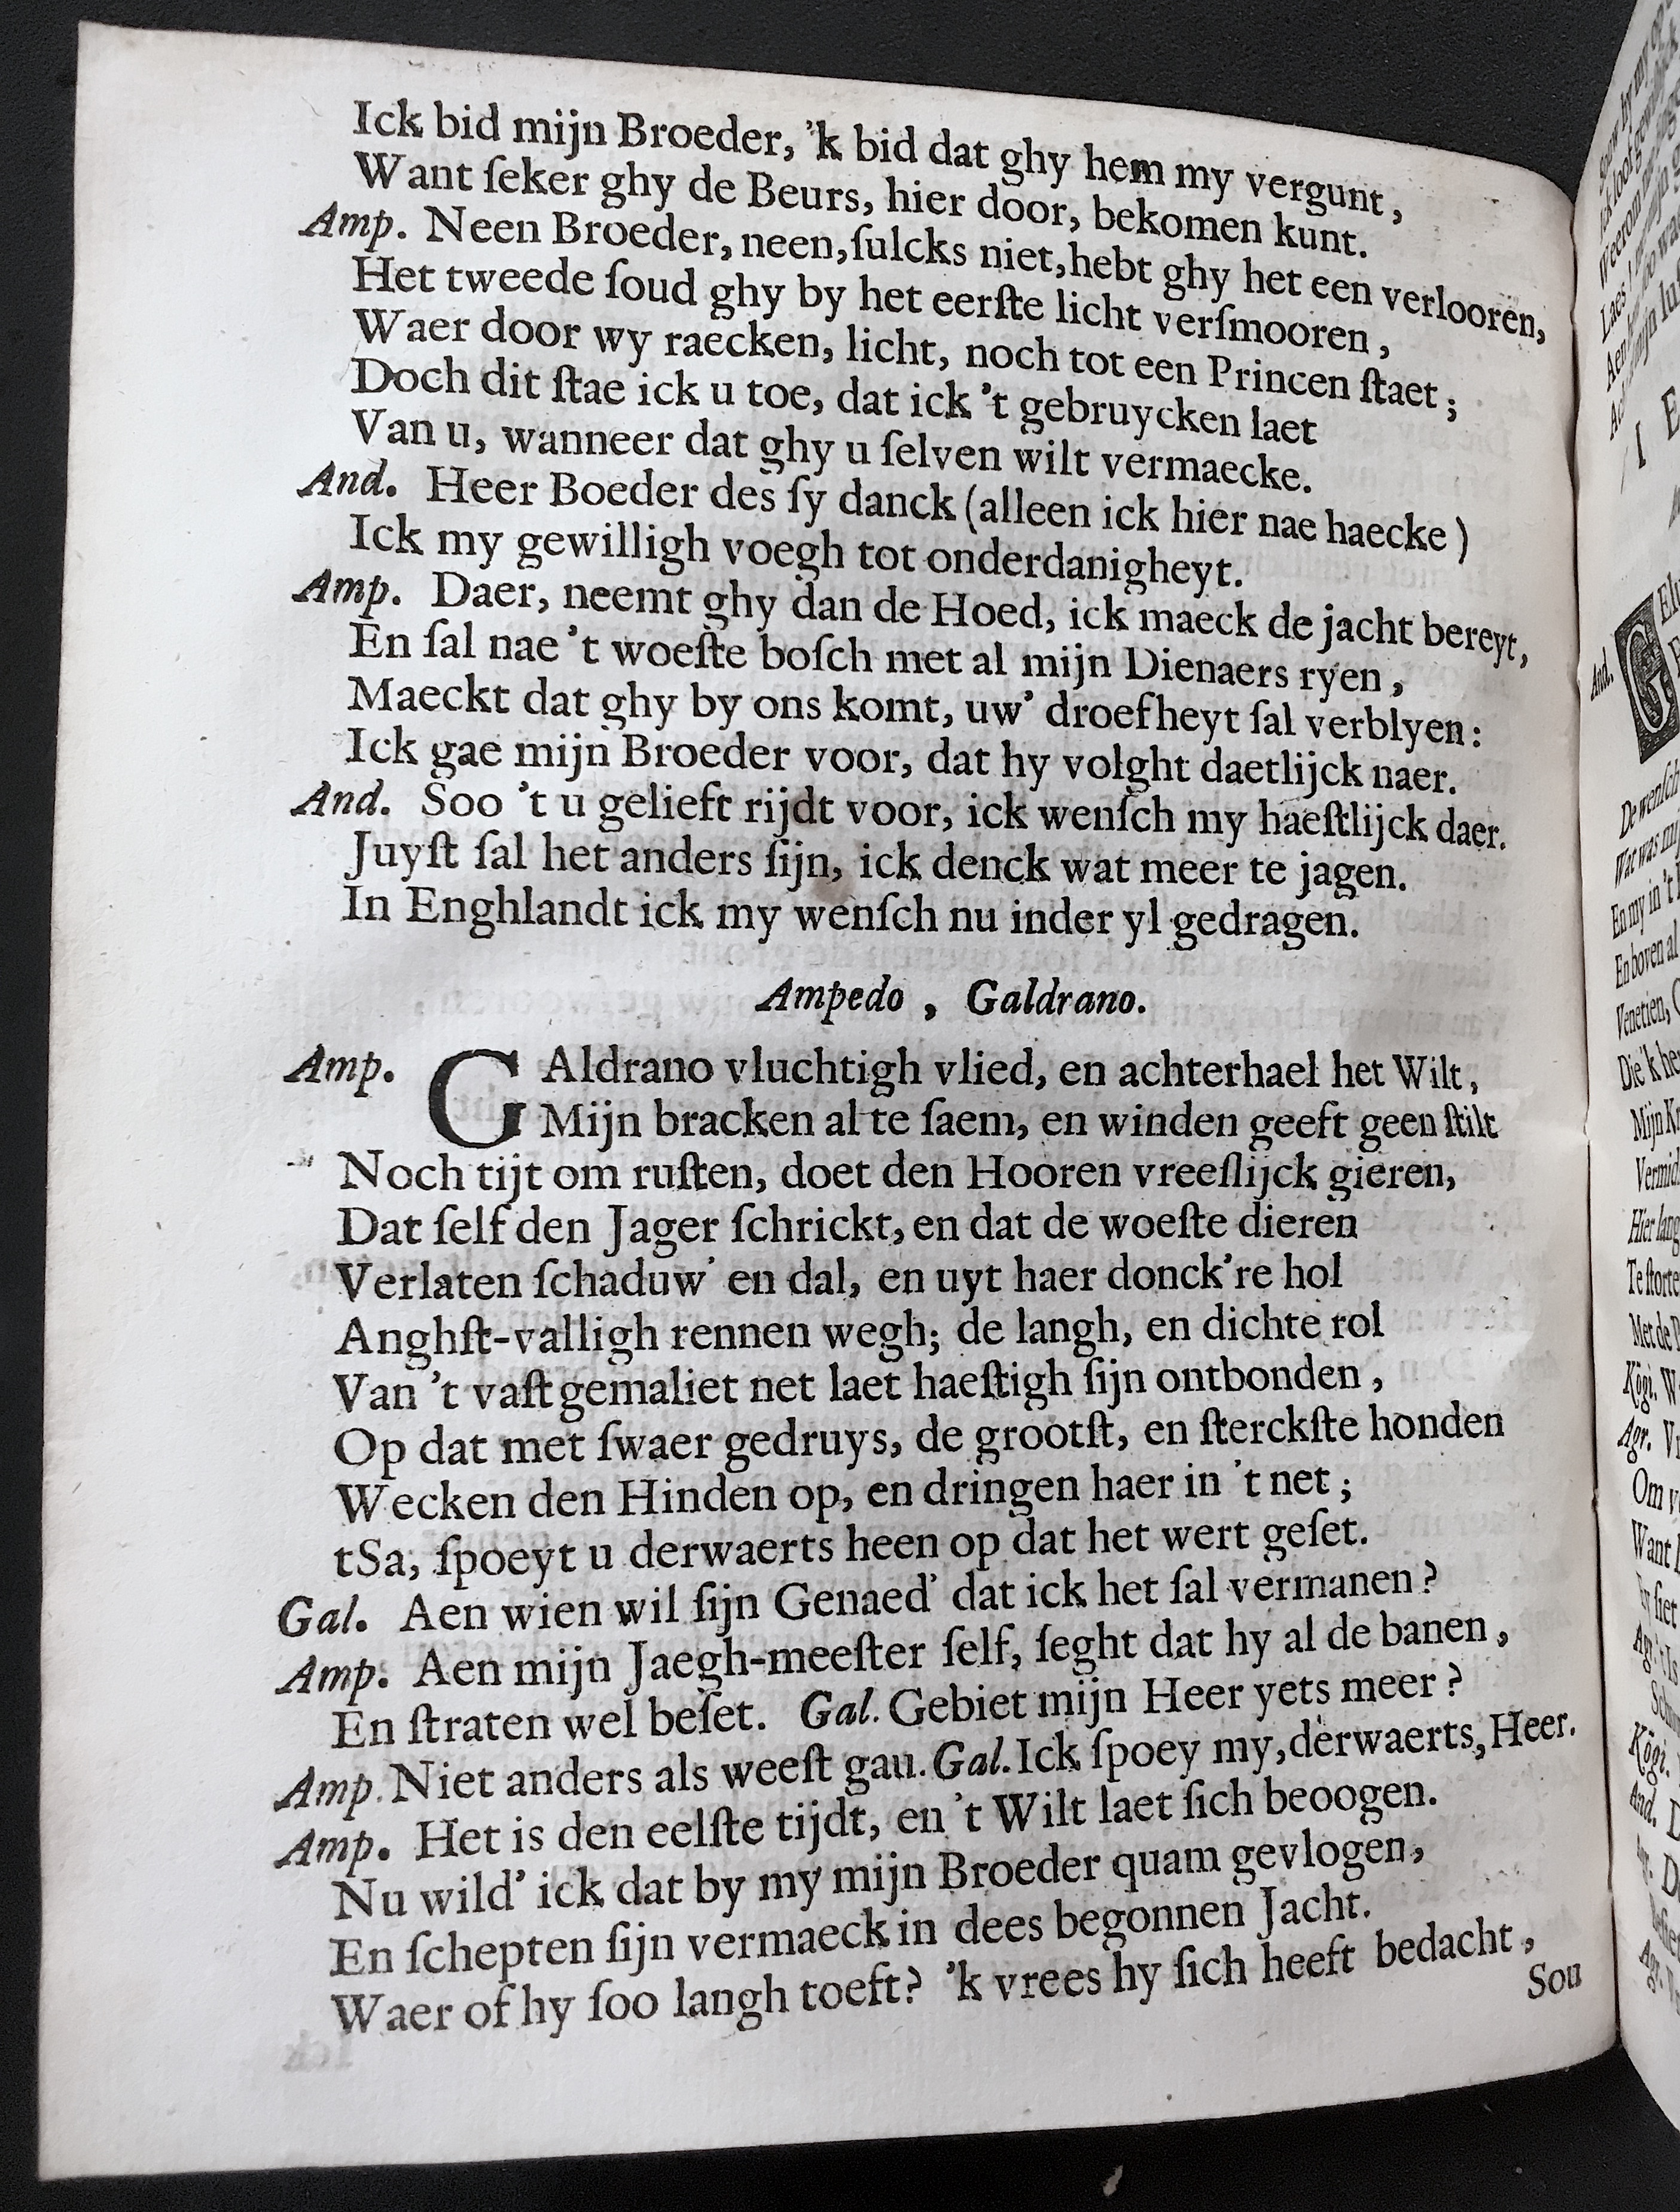 Ick bid mijn Broeder, 'k bid dat ghy hem my vergunt,
Want ſeker ghy de Beurs, hier door, bekomen kunt.
Amp. Neen Broeder, neen, ſulcks niet, hebt ghy het een verlooren,
Het tweede ſoud ghy by het eerſte licht verſmooren,
Waer door wy raecken, licht, noch tot een Princen ſtaet;
Doch dit ſtae ick u toe, dat ick 't gebruycken laet
Van u, wanneer dat ghy u ſelven wilt vermaecke.
And. Heer Boeder des ſy danck (alleen ick hier nae haecke)
Ick my gewilligh voegh tot onderdanigheyt.
Amp. Daer, neemt ghy dan de Hoed, ick maeck de jacht bereyt,
En ſal nae 't woeſte boſch met al mijn Dienaers ryen,
Maeckt dat ghy by ons komt, uw' droefheyt ſal verblyen:
Ick gae mijn Broeder voor, dat hy volght daetlijck naer.
And. Soo 't u gelieft rijdt voor, ick wenſch my haeſtlijck daer.
Juyſt ſal het anders ſijn, ick denck wat meer te jagen.
In Enghlandt ick my wenſch nu inder yl gedragen.
Ampedo, Galdrano.
Amp. GAldrano vluchtigh vlied, en achterhael het Wilt,
Mijn bracken al te ſaem, en winden geeft geen ſtilt
Noch tijt om ruſten, doet den Hooren vreeſlijck gieren,
Dat ſelf den Jager ſchrickt, en dat de woeſte dieren
Verlaten ſchaduw' en dal, en uyt haer donck're hol
Anghſt-valligh rennen wegh; de langh, en dichte rol
Van 't vaſt gemaliet net laet haeſtigh ſijn ontbonden,
Op dat met ſwaer gedruys, de grootſt, en ſterckſte honden
Wecken den Hinden op, en dringen haer in 't net;
tSa, ſpoeyt u derwaerts heen op dat het wert geſet.
Gal. Aen wien wil ſijn Genaed' dat ick het ſal vermanen?
Amp. Aen mijn Jaegh-meeſter ſelf, ſeght dat hy al de banen,
En ſtraten wel beſet. Gal. Gebiet mijn Heer yets meer?
Amp. Niet anders als weeſt gau. Gal. Ick ſpoey my, derwaerts, Heer.
Amp. Het is den eelſte tijdt, en 't Wilt laet ſich beoogen.
Nu wild' ick dat by my mijn Broeder quam gevlogen,
En ſchepten ſijn vermaeck in dees begonnen Jacht.
Waer of hy ſoo langh toeft? 'k vrees hy ſich heeft bedacht,
Sou